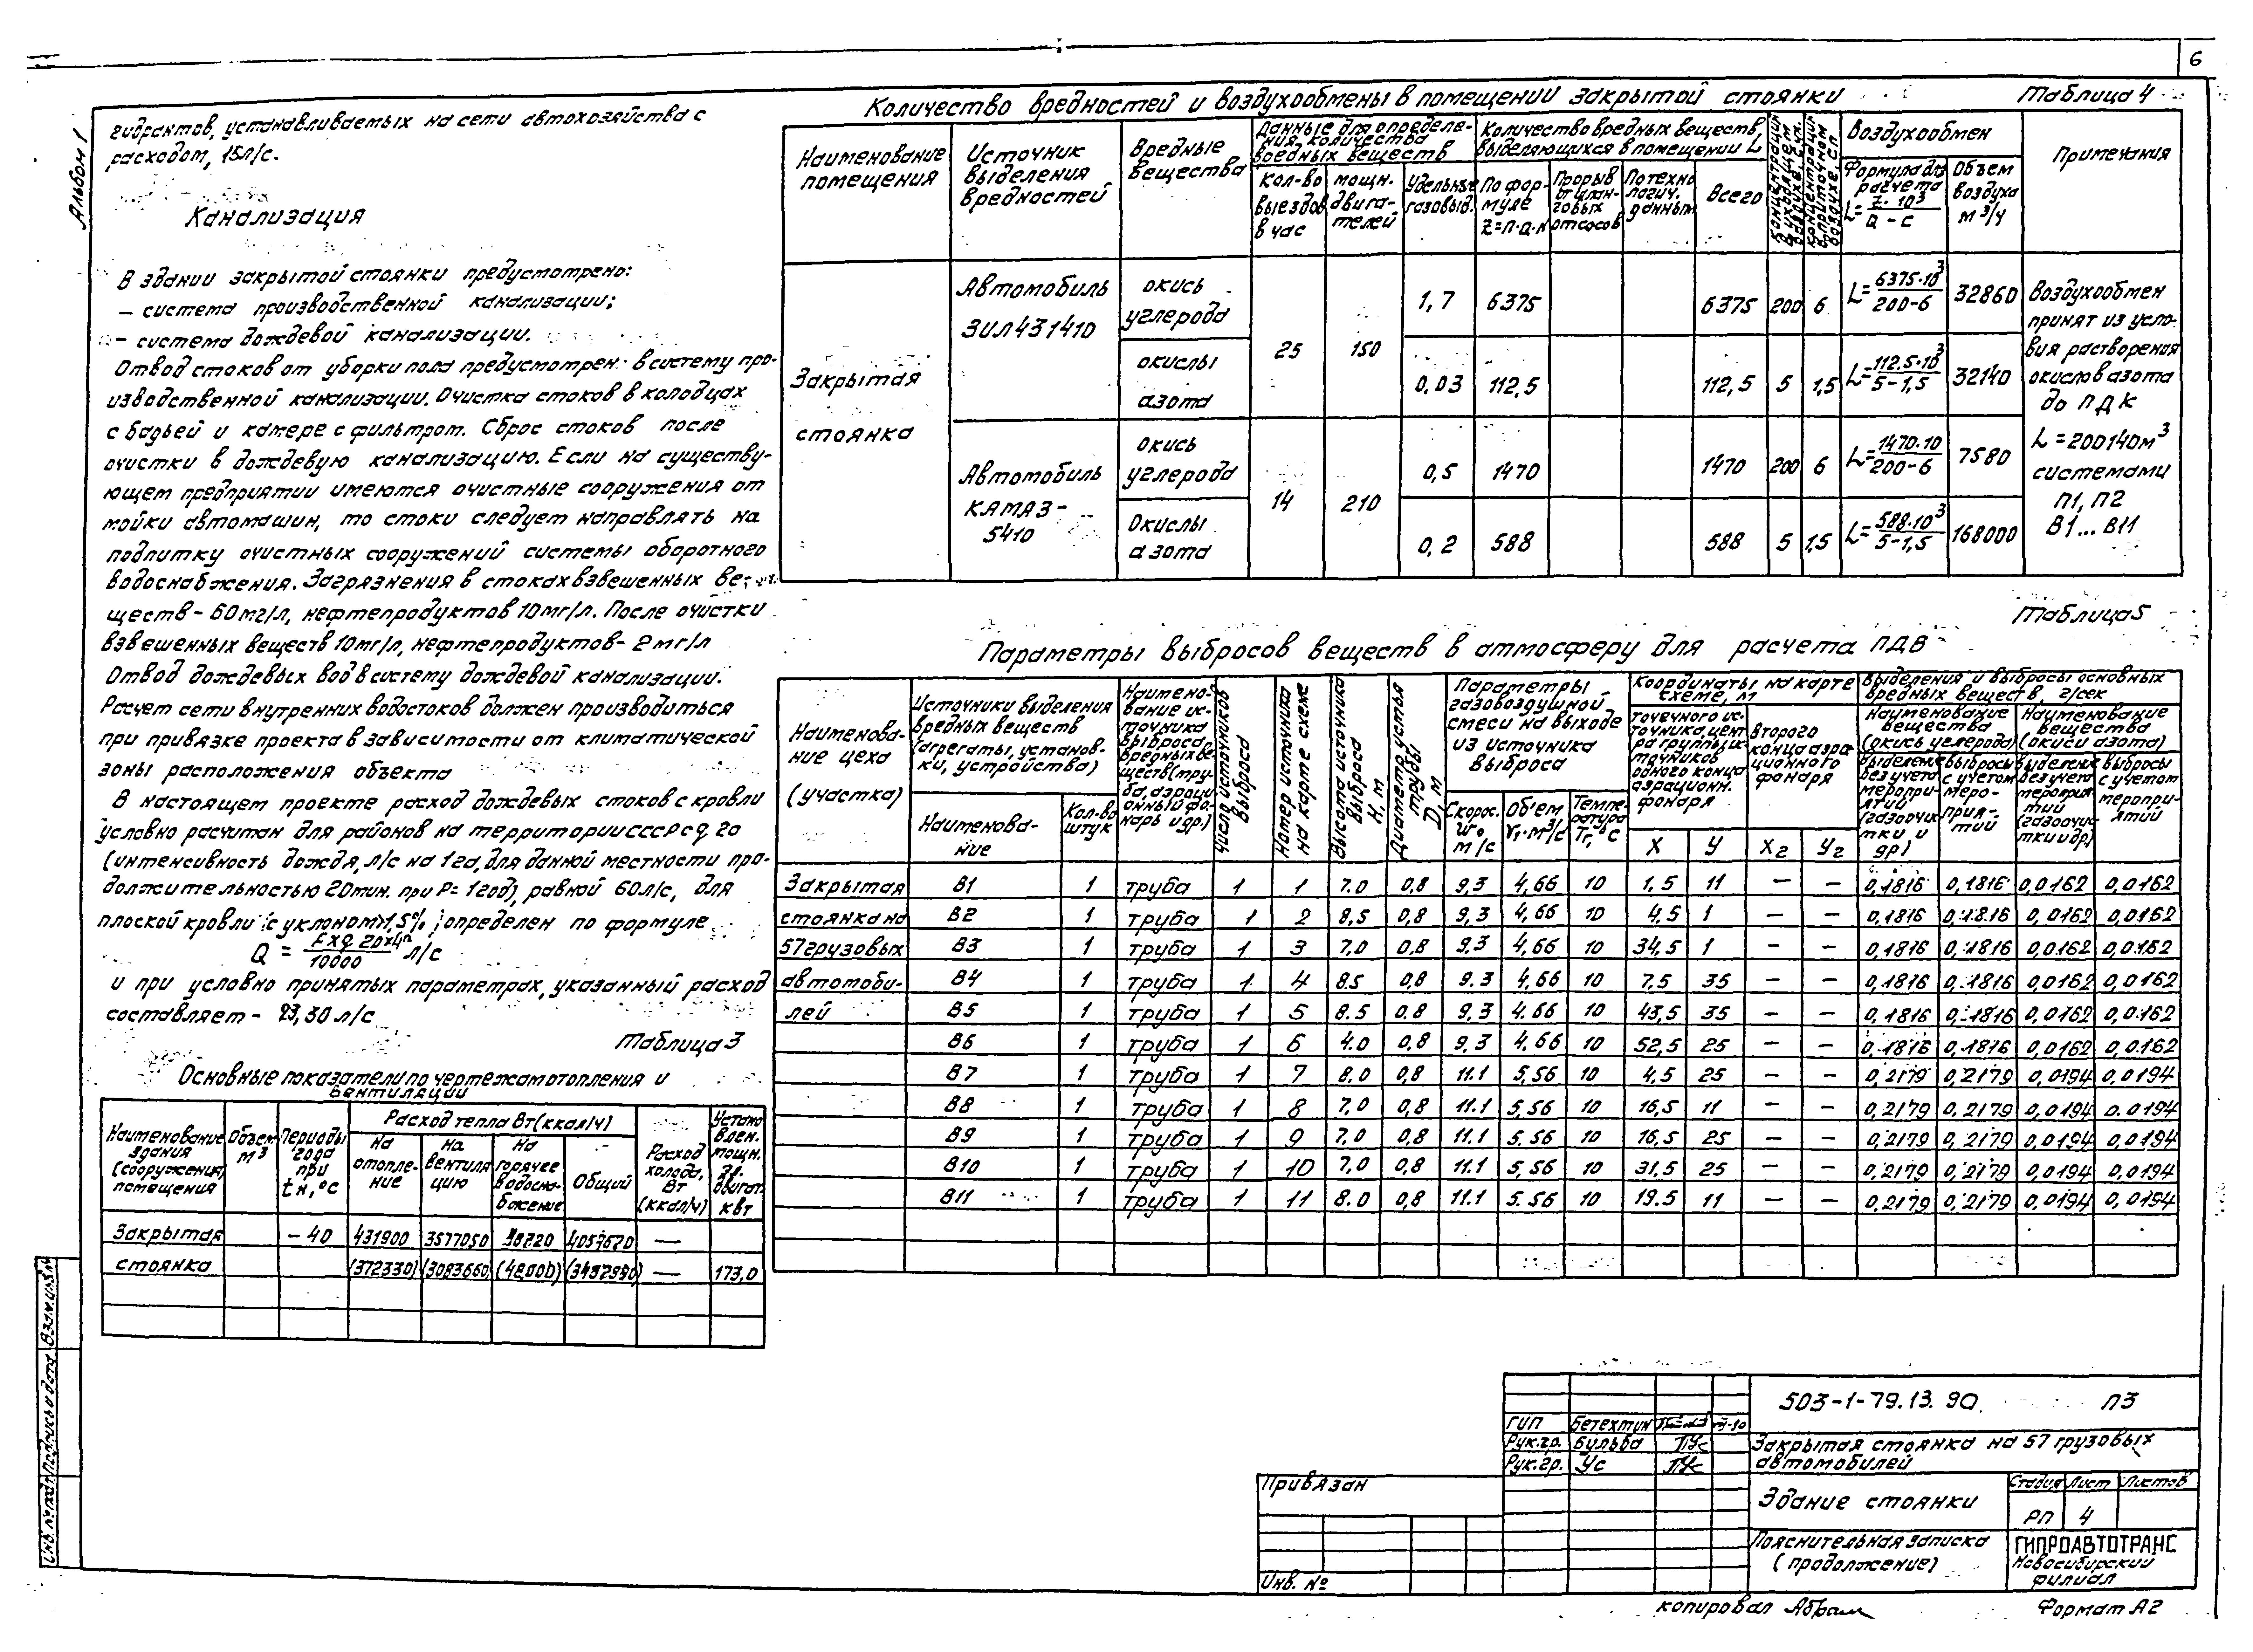 6
Альбом I
гидрантов, устанавливаемых на сети автохозяйства с
расходом, 15л/с.
Канализация
В здании закрытой стоянки предусмотрено:
– система производственной канализации;
– система дождевой канализации.
Отвод стоков от уборки пола предусмотрен в систему про-
изводственной канализации. Очистка стоков в колодцах
с бадьей и камере с фильтром. Сброс стоков после
очистки в дождевую канализацию. Если на существу-
ющем предприятии имеются очистные сооружения от
мойки автомашин, то стоки следует направлять на
подпитку очистных сооружений системы оборотного
водоснабжения. Загрязнения в стоках взвешенных ве-
ществ – 60мг/л, нефтепродуктов 10мг/л. После очистки
взвешенных веществ 10мг/л, нефтепродуктов – 2мг/л
Отвод дождевых вод в систему дождевой канализации.
Расчет сети внутренних водостоков должен производиться
при привязке проекта в зависимости от климатической
зоны расположения объекта
В настоящем проекте расход дождевых стоков с кровли
условно расчитан для районов на территории СССР с q 20
(интенсивность дождя, л/с на 1га, для данной местности про-
должительностью 20мин. при P= 1год), равной 60л/с, для
плоской кровли (с уклоном>1,5%) определен по формуле
Q = F x q 20x4ⁿ / 10000 л/с
и при условно принятых параметрах, указанный расход
составляет – 23,30 л/с
Таблица 3
Основные показатели по чертежам отопления и
вентиляции
Наименование здания (сооружения) помещения | Объем м³ | Периоды года при tн,°C | Расход тепла Вт (ккал/ч) | Расход холода, Вт (ккал/ч) | Установлен. мощн. эл. двигат. кВт
на отопле-ние | на вентиля цию | на горячее водосна-бжение | Общий
Закрытая | –40 | 431900 | 3577050 | 48720 | 4057670 | —
стоянка | (372330) | (3083660) | (42000) | — | 173,0
Количество вредностей и воздухообмены в помещении закрытой стоянки
Таблица 4
Наименование помещения | Источник выделения вредностей | Вредные вещества | Данные для определе-ния количества вредных веществ | Количество вредных веществ, выделяющихся в помещении L | Концентрация в уходящем воздухе | Концентрация в приточном воздухе | Воздухообмен | Примечания
Кол-во выездов в час | мощн. двига-телей | Удельные газовыд. | По фор-муле Z=n·q·N | Прорыв от шлан-говых отсосов | По техно логич. данным | Всего | Формула для расчета L= Z·10³ / Q – C | Объем воздуха м³/ч
Закрытая стоянка
Автомобиль ЗИЛ431410 | окись углерода | 25 | 150 | 1,7 | 6375 | 6375 | 200 | 6 | L= 6375·10³ / 200-6 | 32860
окислы азота | 0,03 | 112,5 | 112,5 | 5 | 1,5 | L= 112.5·10³ / 5-1,5 | 32140
Автомобиль КАМАЗ-5410 | окись углерода | 14 | 210 | 0,5 | 1470 | 1470 | 200 | 6 | L= 1470·10 / 200-6 | 7580
Окислы азота | 0,2 | 588 | 588 | 5 | 1,5 | L= 588·10³ / 5-1,5 | 168000
Воздухообмен
принят из усло-
вия растворения
окислов азота
до ПДК
L = 200140м³
системами
П1, П2
В1...В11
Таблица 5
Параметры выбросов веществ в атмосферу для расчета ПДВ
Наименова-ние цеха (участка) | Источники выделения вредных веществ (агрегаты, установ-ки, устройства) | Наимено-вание ис-точника выброса вредных ве-ществ (тру-ба, аэраци-онный фо-нарь и др.) | Число источников выброса | Номер источника на карте схеме | Высота источника выброса H, м | Диаметр устья трубы D, м | Параметры газовоздушной смеси на выходе из источника выброса | Координаты на карте схеме, м | Выделения и выбросы основных вредных веществ, г/сек
Наименова-ние | Кол-во штук | Скорос. w₀ м/с | Объем V₁·м³/с | Темпе-ратура Tг,°C | точечного ис-точника, цент ра группы ис-точников одного конца аэрационн. фонаря | Второго конца аэра ционного фонаря | Наименование вещества (окись углерода) | Наименование вещества (окиси азота)
X | У | X₂ | У₂ | Выделение без учета меропри-ятий (газоочис тки и др) | Выбросы с учетом меро-прия-тий | Выделение без учета мероприя тий (газоочис тки и др) | Выбросы с учетом меропри-ятий
Закрытая | В1 | 1 | труба | 1 | 1 | 7.0 | 0,8 | 9,3 | 4,66 | 10 | 1,5 | 11 | – | – | 0,1816 | 0,1816 | 0,0162 | 0,0162
стоянка на | В2 | 1 | труба | 1 | 2 | 8,5 | 0,8 | 9,3 | 4,66 | 10 | 4,5 | 1 | – | – | 0,1816 | 0,1816 | 0,0162 | 0,0162
57 грузовых | В3 | 1 | труба | 1 | 3 | 7,0 | 0,8 | 9.3 | 4,66 | 10 | 34,5 | 1 | – | – | 0,1816 | 0,1816 | 0,0162 | 0,0162
автомоби- | В4 | 1 | труба | 1 | 4 | 8.5 | 0,8 | 9.3 | 4,66 | 10 | 7,5 | 35 | – | – | 0,1816 | 0,1816 | 0,0162 | 0,0162
лей | В5 | 1 | труба | 1 | 5 | 8.5 | 0,8 | 9,3 | 4.66 | 10 | 43,5 | 35 | – | – | 0,1816 | 0,1816 | 0,0162 | 0,0162
В6 | 1 | труба | 1 | 6 | 4.0 | 0,8 | 9,3 | 4,66 | 10 | 52,5 | 25 | – | – | 0,1816 | 0,1816 | 0,0162 | 0,0162
В7 | 1 | труба | 1 | 7 | 8.0 | 0,8 | 11.1 | 5,56 | 10 | 4,5 | 25 | – | – | 0,2179 | 0,2179 | 0,0194 | 0,0194
В8 | 1 | труба | 1 | 8 | 7,0 | 0,8 | 11.1 | 5,56 | 10 | 16,5 | 11 | – | – | 0,2179 | 0,2179 | 0,0194 | 0.0194
В9 | 1 | труба | 1 | 9 | 7.0 | 0,8 | 11.1 | 5.56 | 10 | 16,5 | 25 | – | – | 0,2179 | 0,2179 | 0,0194 | 0,0194
В10 | 1 | труба | 1 | 10 | 7,0 | 0,8 | 11.1 | 5,56 | 10 | 31,5 | 25 | – | – | 0,2179 | 0,2179 | 0,0194 | 0,0194
В11 | 1 | труба | 1 | 11 | 8.0 | 0,8 | 11.1 | 5.56 | 10 | 19.5 | 11 | – | – | 0,2179 | 0,2179 | 0,0194 | 0,0194
Инв. № подл. Подпись и дата Взам. инв. №
Привязан
Инв. №
ГИП Бетехтин
Рук.гр. Бульба
Рук.гр. Ус
503-1-79.13.90 ПЗ
Закрытая стоянка на 57 грузовых
автомобилей
Здание стоянки
Стадия Лист Листов
РП 4
Пояснительная записка
(продолжение)
ГИПРОАВТОТРАНС
Новосибирский
филиал
копировал Абрам
Формат А2